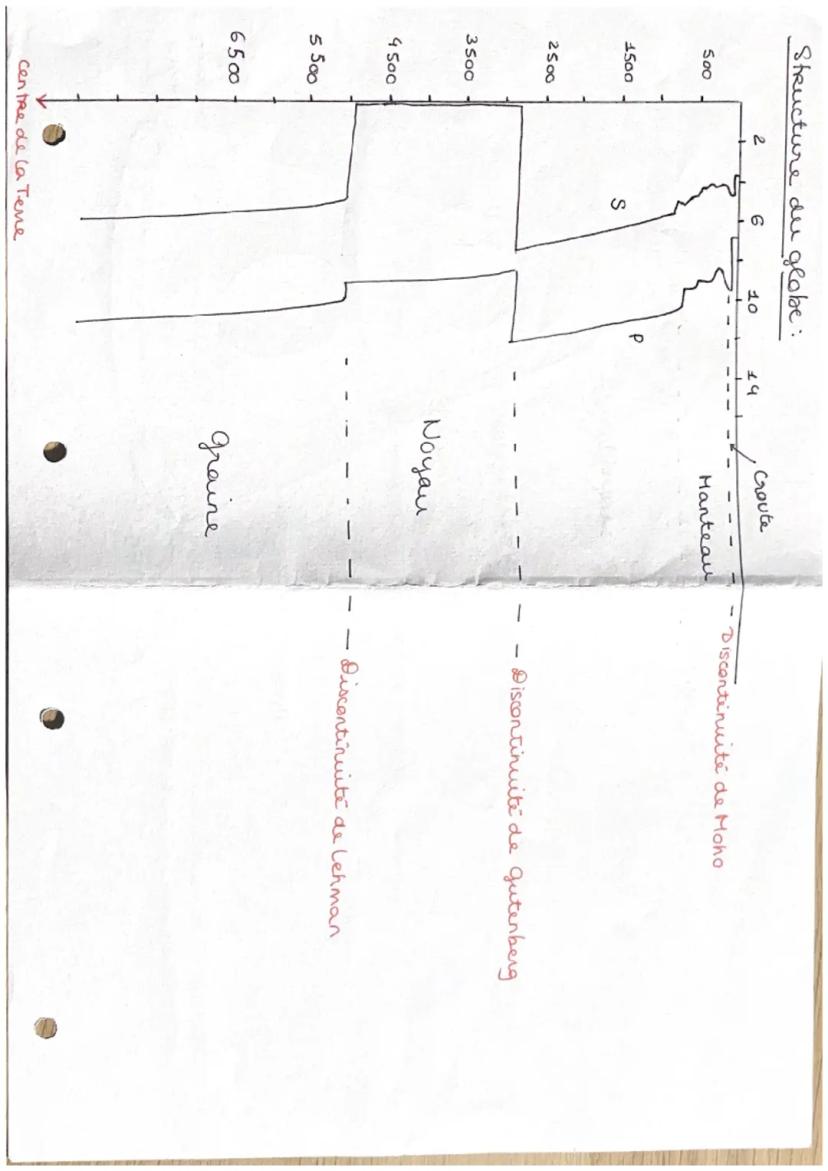 Structure du globe :
2 6 10 14
500
1500
2500
3500
4500
5500
6500
S
P
Croute
Manteau
Noyau
Graine
Discontinuité de Moho
Discontinuité de Gutenberg
Discontinuité de Lehman
Centre de la Terre